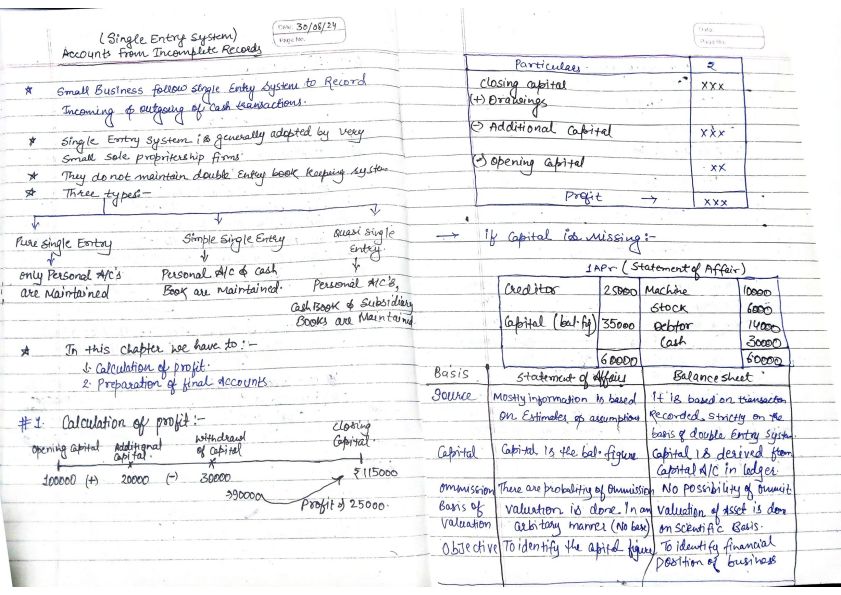 (Single Entry System)
Accounts from Incomplete Records
Date: 30/08/24
Page No.
* Small Business follow single Entry System to Record
Incoming & outgoing of cash transactions.
* Single Entry System is generally adopted by very
Small sole propritership firms.
* They do not maintain double Entry book keeping system
* Three types:-
Pure Single Entry
only Personal A/c's
are Maintained
Simple Single Entry
Personal A/c & Cash
Book are Maintained.
Quasi Single
Entry
Personal A/c's,
Cash Book & Subsidiary
Books are Maintained
* In this chapter we have to:-
1. Calculation of profit.
2. Preparation of final Accounts
#1. Calculation of profit:-
opening Capital
Additional
Capital.
withdraw
of Capital
Closing
Capital.
100000 (+) 20000 (-) 30000
₹115000
90000
Profit of 25000.
Date
Page No.
Particulars ₹
closing capital xxx
(+) Drawings
(-) Additional Capital xxx
(-) Opening Capital xx
Profit → xxx
→ if Capital is Missing:-
1 Apr (Statement of Affair)
Creditor 25000 Machine 10000
Stock 6000
Capital (bal. fig) 35000 Debtor 14000
Cash 30000
60000 60000
Basis Statement of Affairs Balance sheet
Source Mostly information is based It is based on transaction
on Estimates & assumptions Recorded strictly on the
basis of double Entry System.
Capital Capital is the bal. figure Capital is derived from
Capital A/c in ledger
ommission There are probality of ommission No possibility of ommit
Basis of valuation is done. In an valuation of Asset is done
valuation arbitary manner (No base) on Scientific Basis.
Objective To identify the capital figure To identify financial
position of business